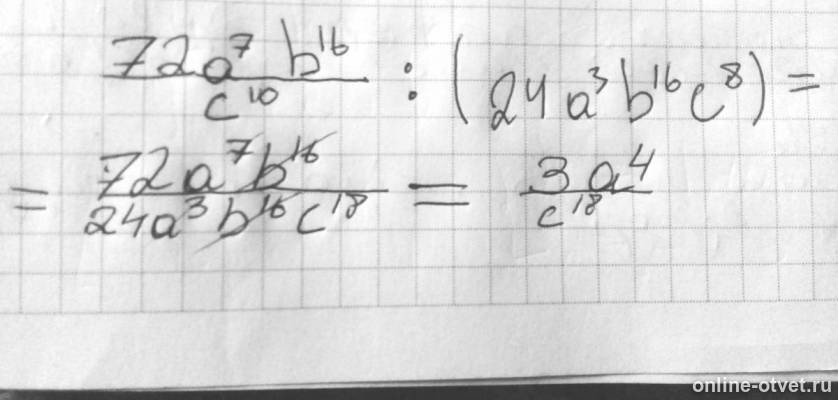 72a⁷ b¹⁶ / c¹⁰ : (24a³b¹⁶c⁸) =
= 72a⁷b¹⁶ / 24a³b¹⁶c¹⁸ = 3a⁴ / c¹⁸
online-otvet.ru